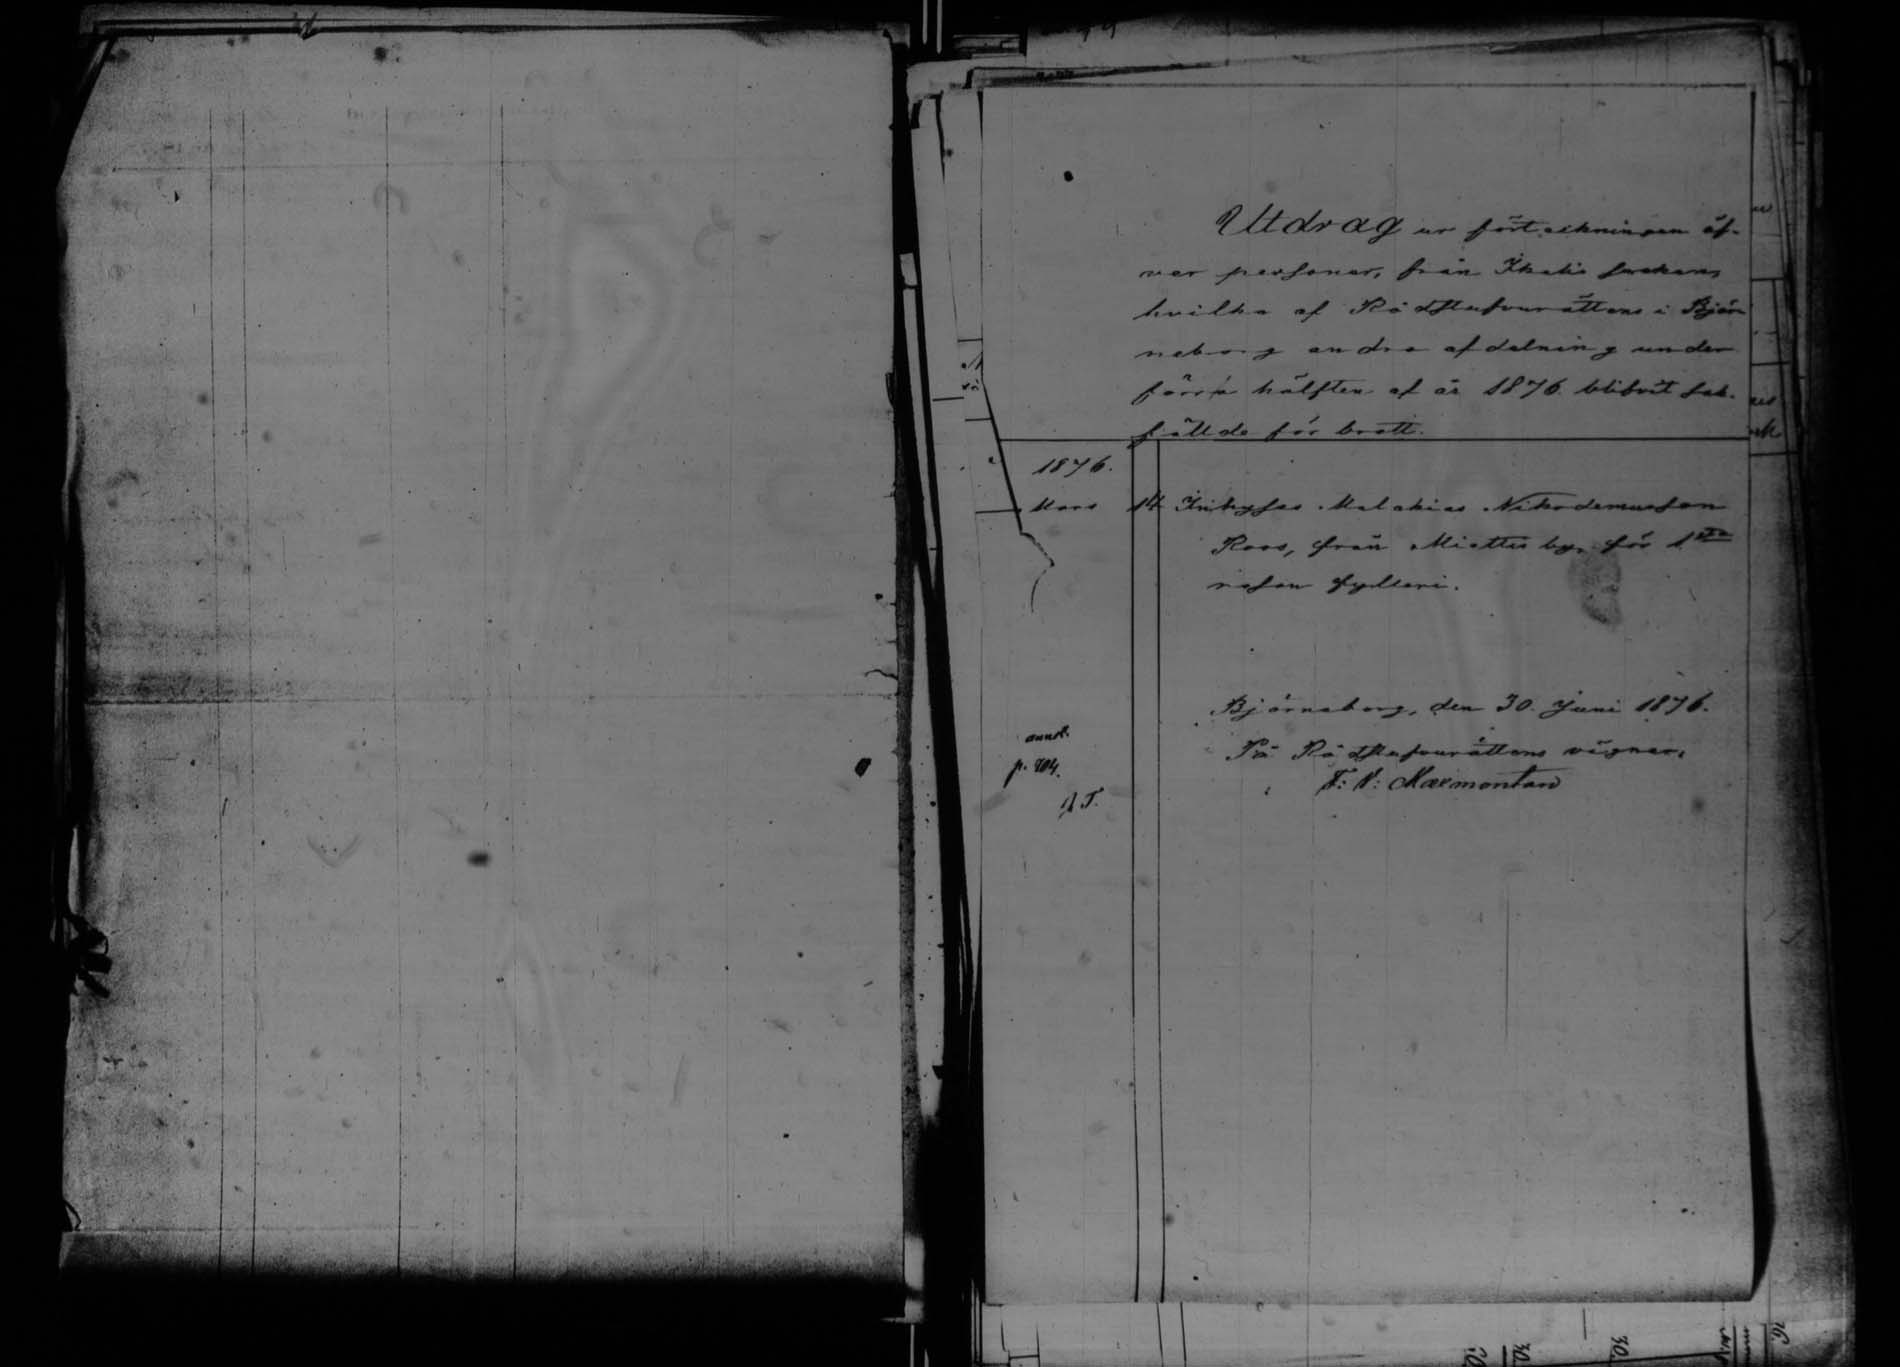 Utdrag ur förteckningen öf-
ver personer, från Ikalis socken,
hvilka af Rådstufvurättens i Björ-
neborg andra afdelning under
förra hälften af år 1876 blifvit sak-
fällde för brott.
1876.
Mars 14 Inhyses Malakias Nikodemusson
Roos, från Miettis by, för 1sta
resan fylleri.
Björneborg, den 30. Juni 1876.
På Rådstufvurättens vägnar,
annot.
p. 204.